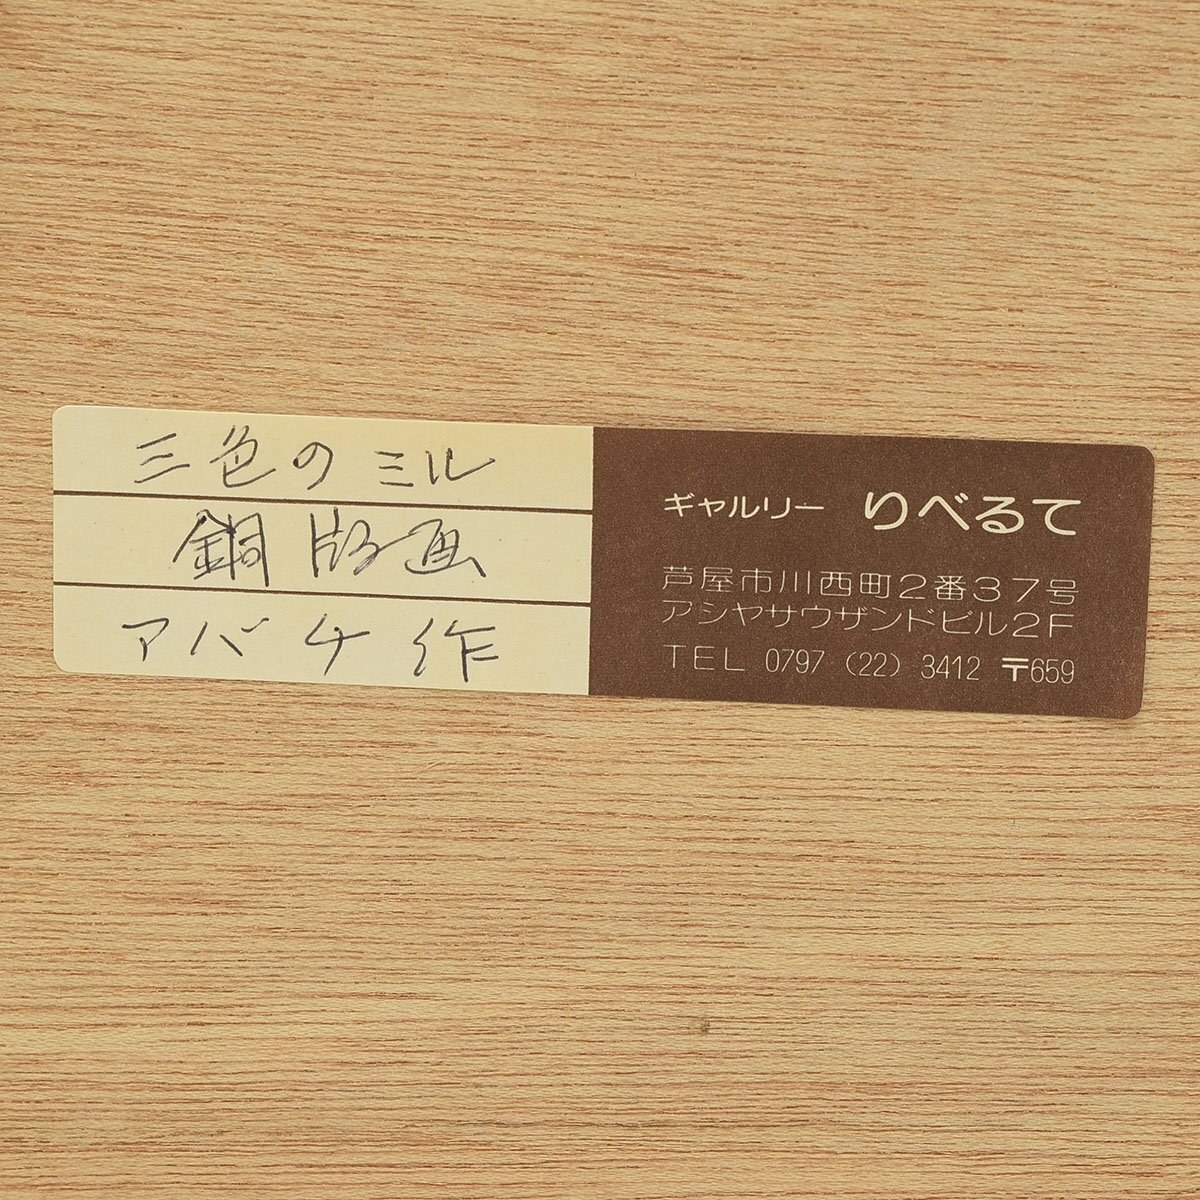 三色のミル
銅版画
アバチ作
ギャルリー りべるて
芦屋市川西町2番37号
アシヤサウザンドビル2F
TEL 0797 (22) 3412 〒659